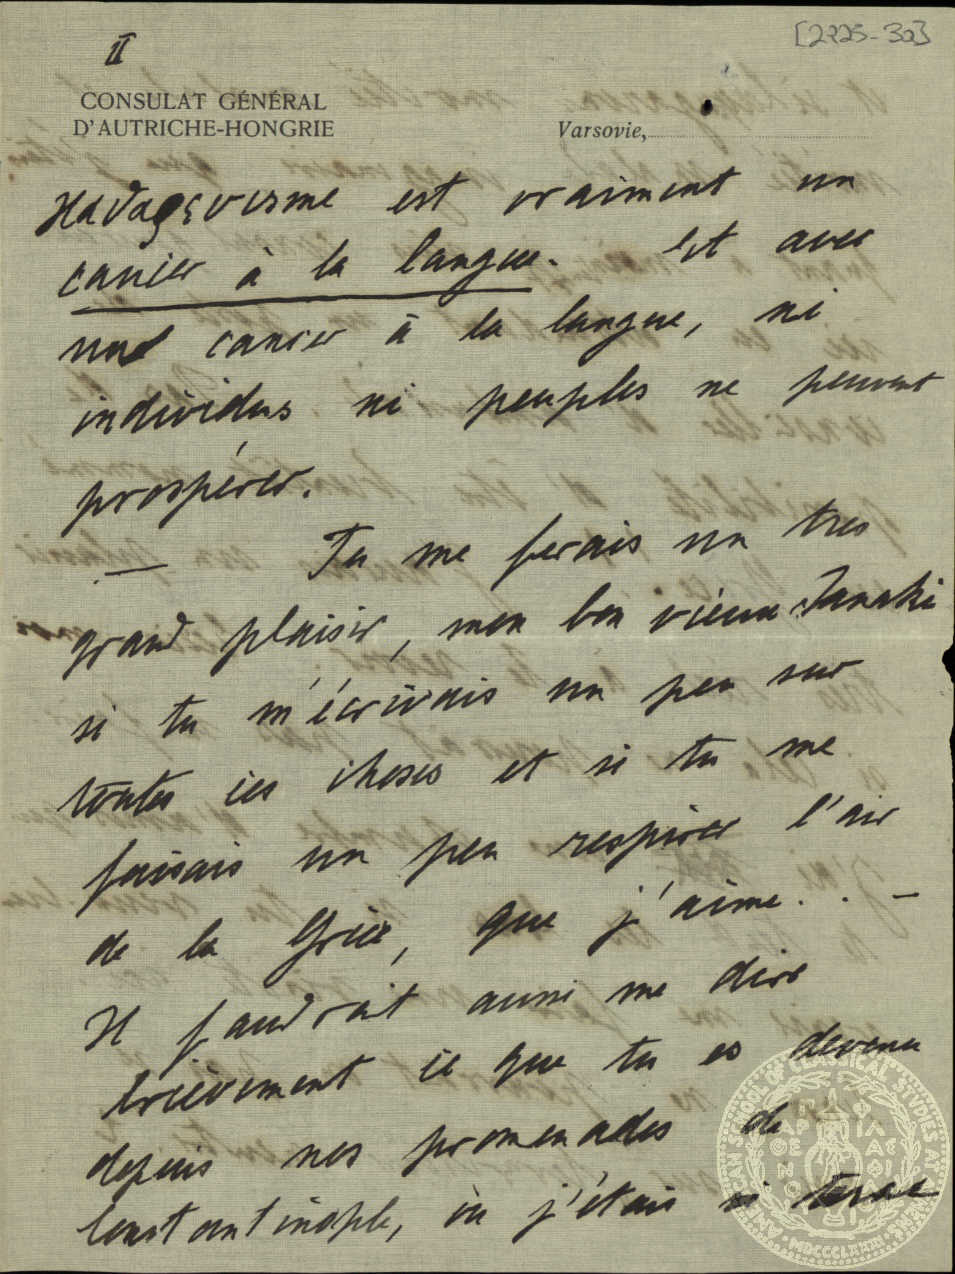 [2225-30]
II
CONSULAT GÉNÉRAL
D'AUTRICHE-HONGRIE
Varsovie,
est vraiment un
cancer à la langue. Et avec
cancer à la langue, ni
individus ni peuples ne peuvent
prospérer.
— Tu me ferais un tres
grand plaisir, mon bon vieux Janaki
si tu m'écrivais un peu sur
toutes ces choses et si tu me
faisais un peu respirer l'air
de la Grèce, que j'aime. . —
Il faudrait aussi me dire
brièvement ce que tu es devenu
depuis nos promenades de
Constantinople, où j'étais si
AMERICAN SCHOOL OF CLASSICAL STUDIES AT ATHENS
MDCCCLXXXI